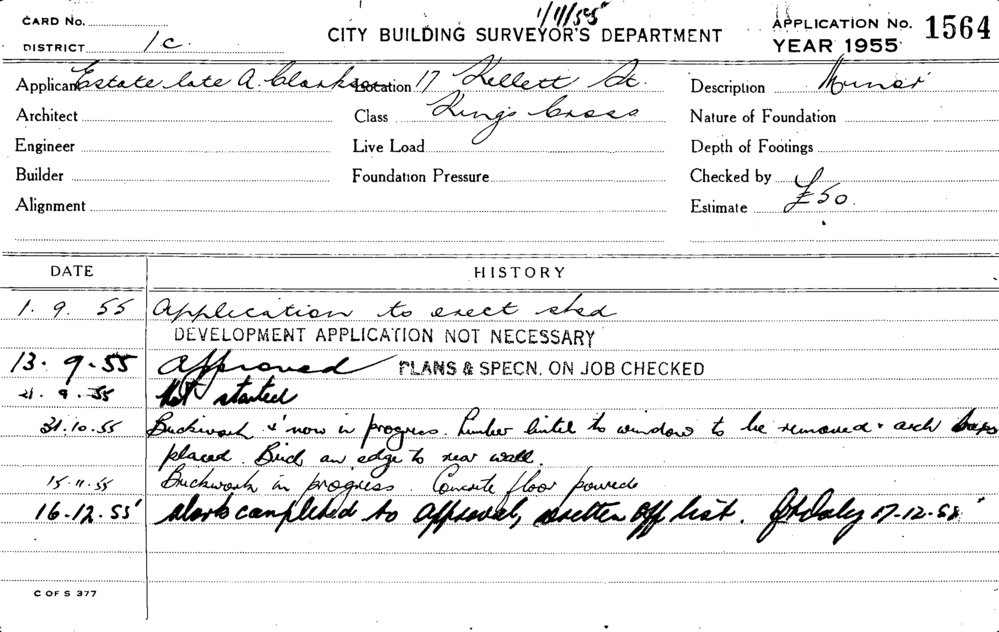 1/11/55
CARD No.
CITY BUILDING SURVEYOR'S DEPARTMENT
APPLICATION No. 1564
DISTRICT 1c
YEAR 1955
Applicant Estate late A. Clarkson Location 17 Kellett St. Description Minor
Architect Class Kings Cross Nature of Foundation
Engineer Live Load Depth of Footings
Builder Foundation Pressure Checked by
Alignment Estimate £50.
DATE HISTORY
1. 9. 55 Application to erect shed
DEVELOPMENT APPLICATION NOT NECESSARY
13. 9. 55 Approved PLANS & SPECN. ON JOB CHECKED
21. 9. 55 Not started
31.10.55 Brickwork now in progress. Timber lintel to window to be removed & arch bars
placed. Brick on edge to rear wall.
15.11.55 Brickwork in progress. Concrete floor poured
16.12.55 Work completed to approval, written off list. Daly 17-12-55
C OF S 377